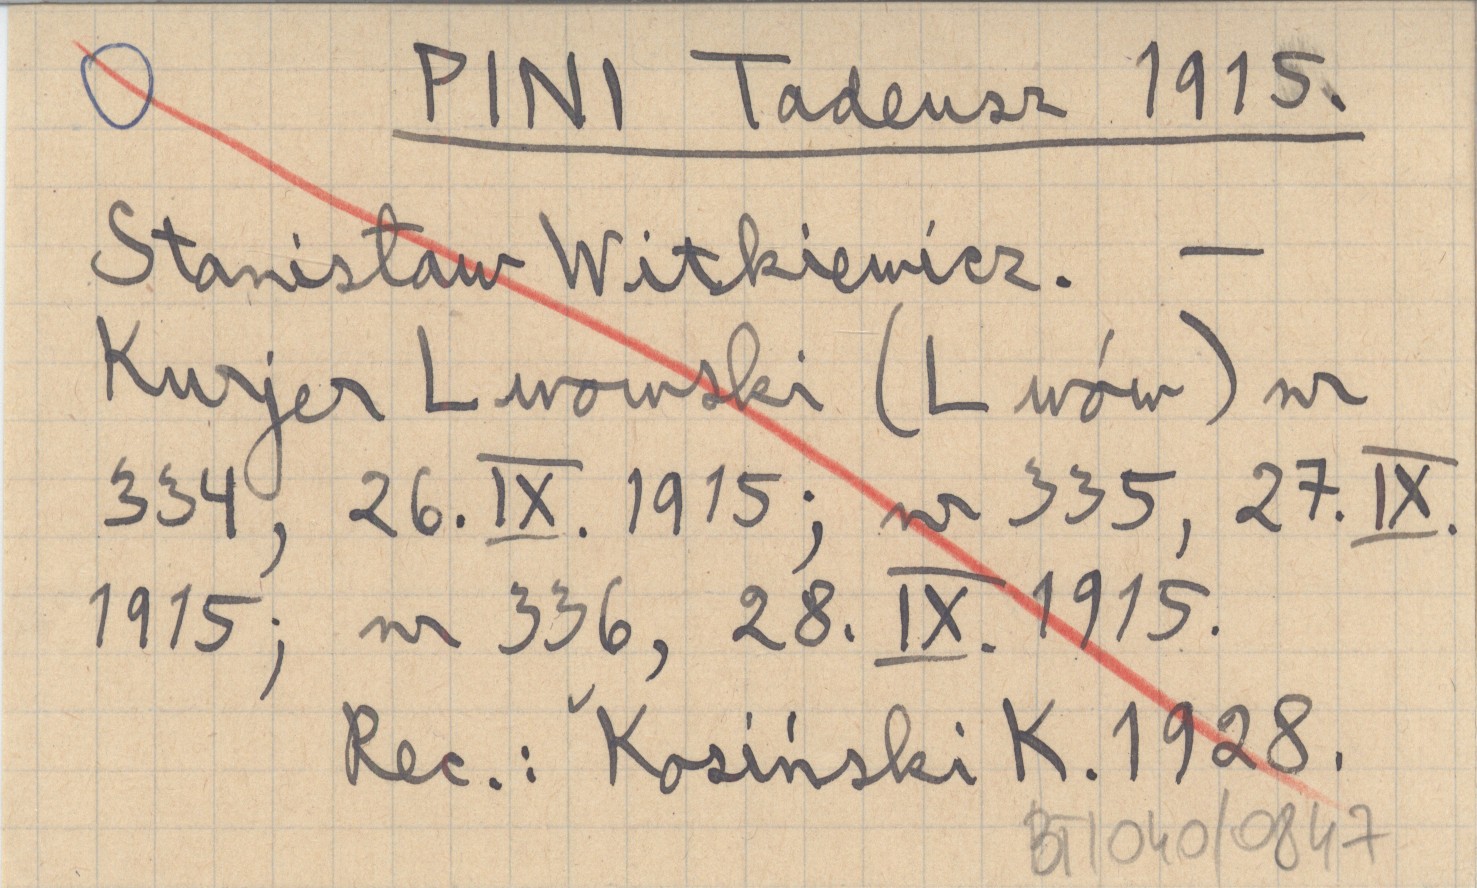 PINI Tadeusz 1915.
Stanisław Witkiewicz. —
Kurjer Lwowski (Lwów) nr
334, 26. IX. 1915; nr 335, 27. IX.
1915; nr 336, 28. IX. 1915.
Rec.: Kosiński K. 1928.
BT/040/0847